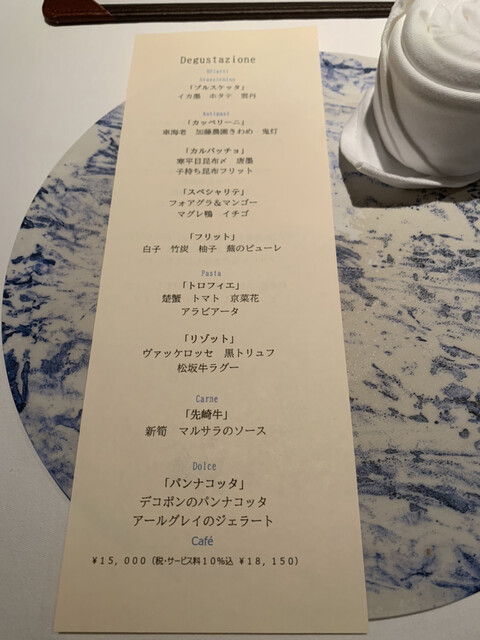 Degustazione
「ブルスケッタ」
イカ墨　ホタテ　雲丹
「カッペリーニ」
車海老　加藤農園きわめ　鬼灯
「カルパッチョ」
寒平目昆布〆　唐墨
子持ち昆布フリット
「スペシャリテ」
フォアグラ＆マンゴー
マグレ鴨　イチゴ
「フリット」
白子　竹炭　柚子　蕪のピューレ
Pasta
「トロフィエ」
楚蟹　トマト　京菜花
アラビアータ
「リゾット」
ヴァッケロッセ　黒トリュフ
松坂牛ラグー
Carne
「先崎牛」
新筍　マルサラのソース
Dolce
「パンナコッタ」
デコポンのパンナコッタ
アールグレイのジェラート
Café
￥15,000（税・サービス料10%込 ￥18,150）